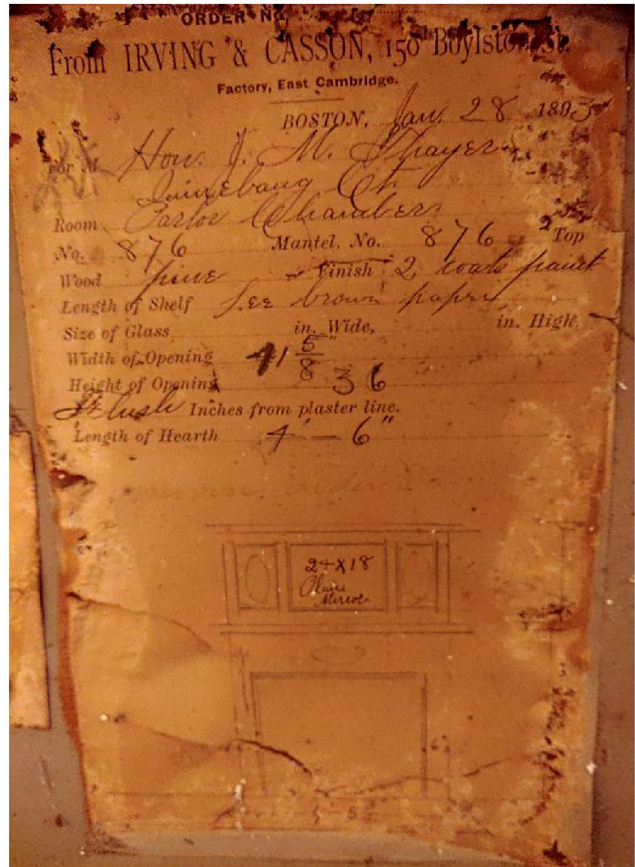 ORDER No.
From IRVING & CASSON, 150 Boylston St.
Factory, East Cambridge.
BOSTON, Jan. 28 1893
Hon. J. M. Thayer
Quinebaug Ct.
Room Parlor Chamber
No. 876 Mantel, No. 876 Top
Wood pine Finish 2 coats paint
Length of Shelf See brown paper
Size of Glass in. Wide, in. High,
Width of Opening 41 5/8"
Height of Opening 36
Flush Inches from plaster line.
Length of Hearth 4' - 6"
24 X 18